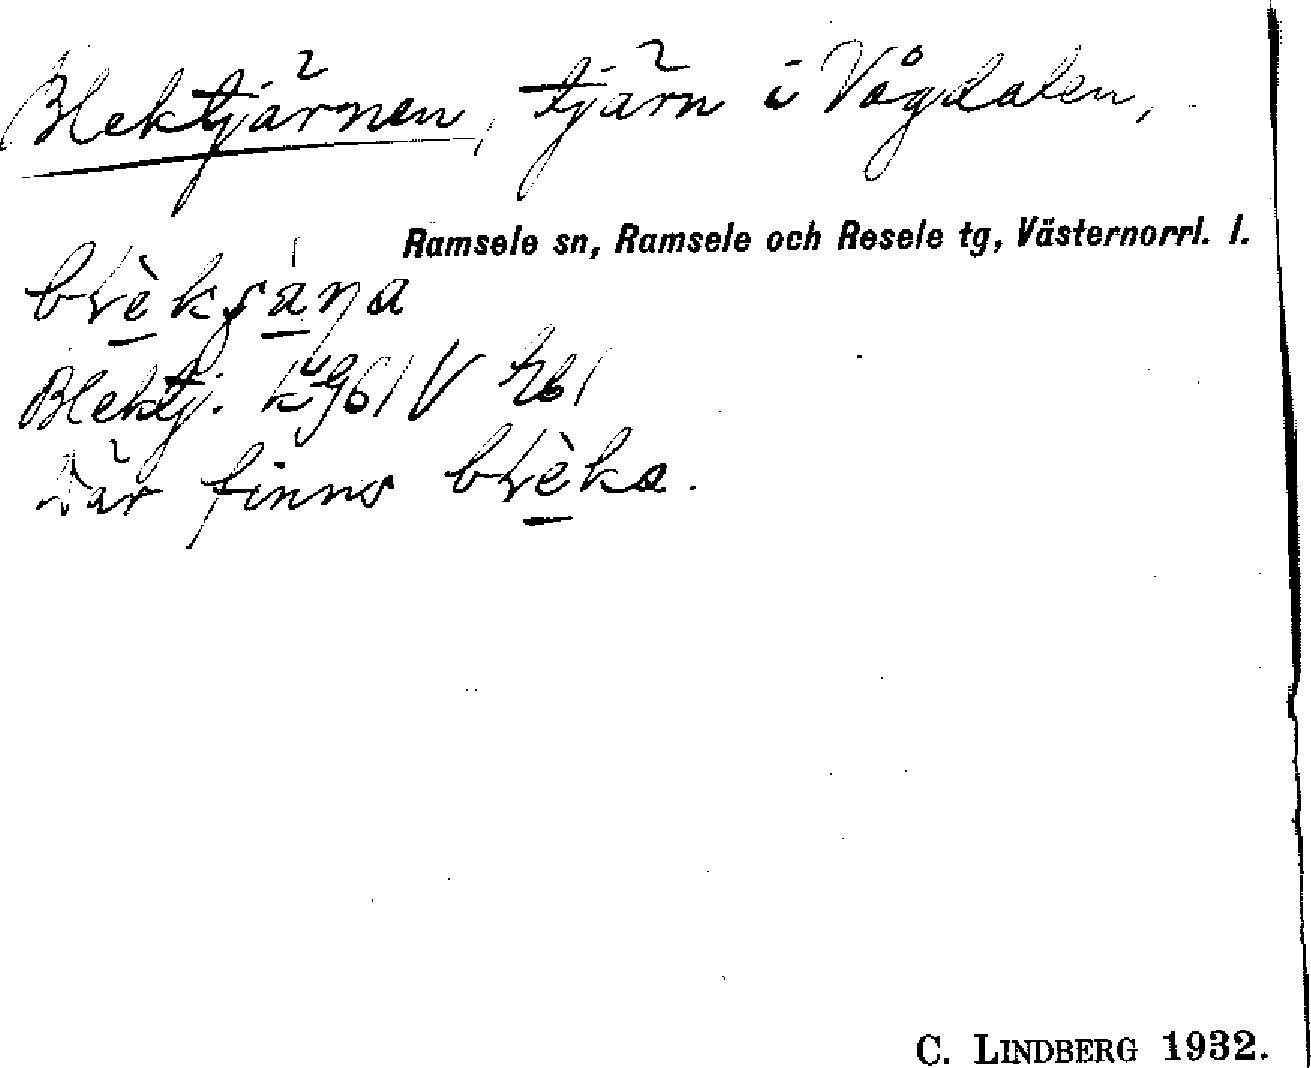 Blektjärnen, tjärn i Vågdalen,
Ramsele sn, Ramsele och Resele tg, Västernorrl. l.
Blektj.
Där finns
C. LINDBERG 1932.